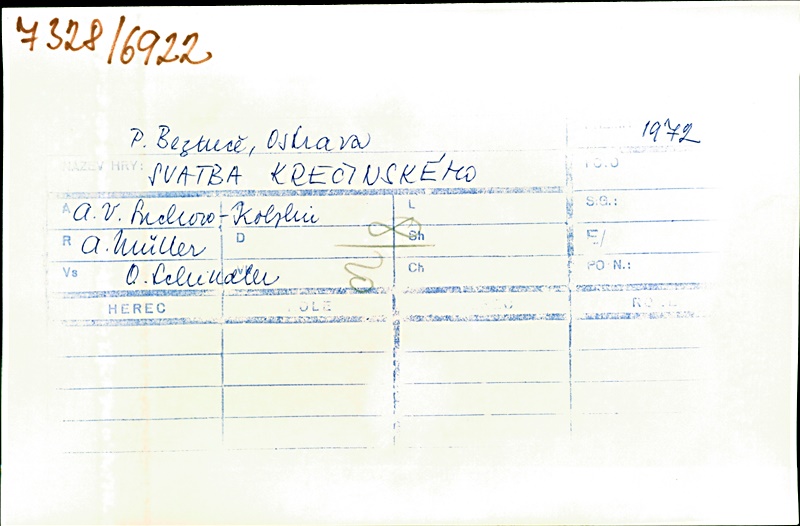 7328/6922
P. Bezruče, Ostrava 1972
NÁZEV HRY: SVATBA KREČINSKÉHO
A A. V. Suchovo-Kobylin L S.G.:
R A. Müller D Sh F/
Vs O. Schindler Ch PO N.:
HEREC